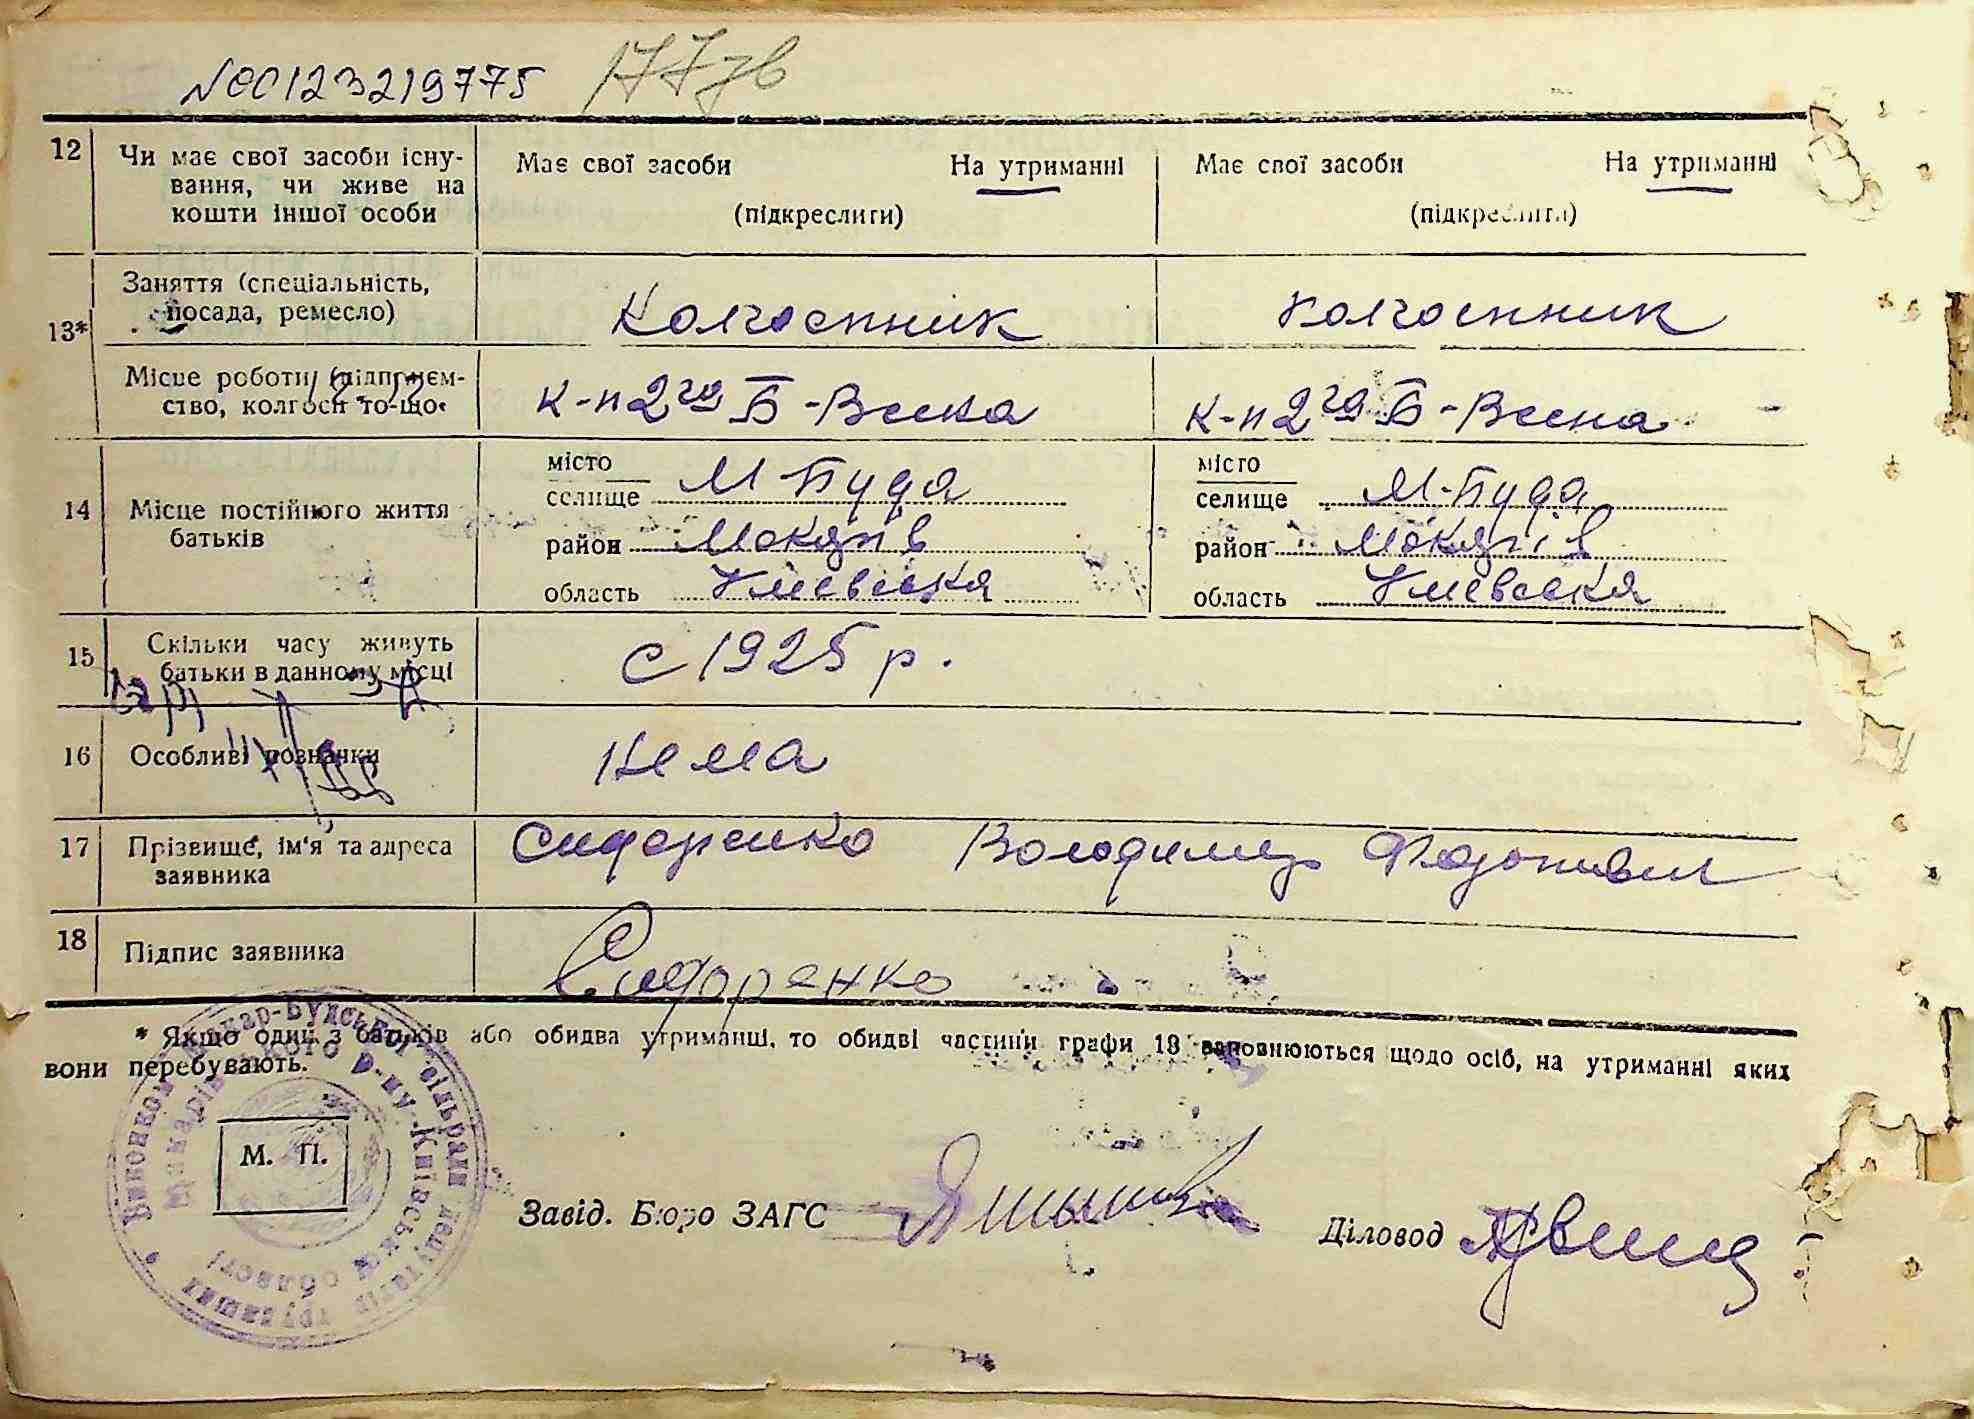 №00123219775 177зв
12 Чи має свої засоби існу-
вання, чи живе на
кошти іншої особи
Має свої засоби На утриманні
(підкреслити)
Має свої засоби На утриманні
(підкреслити)
13* Заняття (спеціальність,
посада, ремесло)
Колгоспник
Колгоспник
Місце роботи (підприєм-
ство, колгосп то-що
к-п 2го Б-Весна
к-п 2го Б-Весна
14 Місце постійного життя
батьків
місто
селище М-Буда
район Макарів
область Киевская
місто
селище М-Буда
район Макарів
область Киевская
15 Скільки часу живуть
батьки в данному місці
с 1925 р.
16 Особливі позначки
Нема
17 Прізвище, ім'я та адреса
заявника
Сидоренко Володимир
18 Підпис заявника
Сидоренко
* Якщо один з батьків або обидва утриманці, то обидві частини графи 13 заповнюються щодо осіб, на утриманні яких
вони перебувають.
Виконком Макар-Будської сільради депутатів трудящих
Макарівського р-ну Київської області
М. П.
Завід. Бюро ЗАГС
Діловод